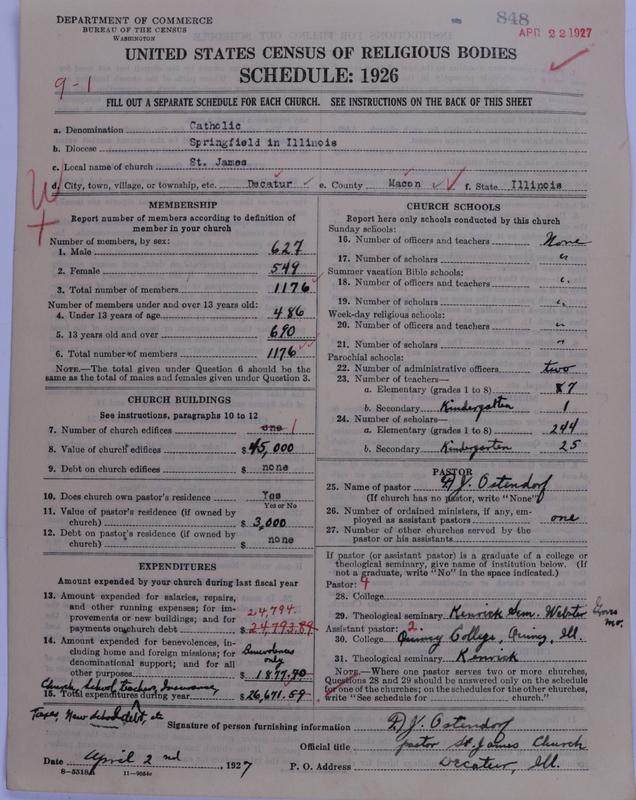 DEPARTMENT OF COMMERCE
BUREAU OF THE CENSUS
WASHINGTON
848
APR 22 1927
UNITED STATES CENSUS OF RELIGIOUS BODIES
SCHEDULE: 1926
9-1
FILL OUT A SEPARATE SCHEDULE FOR EACH CHURCH. SEE INSTRUCTIONS ON THE BACK OF THIS SHEET
a. Denomination Catholic
b. Diocese Springfield in Illinois
c. Local name of church St. James
d. City, town, village, or township, etc. Decatur e. County Macon f. State Illinois
MEMBERSHIP
Report number of members according to definition of
member in your church
Number of members, by sex:
1. Male 627
2. Female 549
3. Total number of members 1176
Number of members under and over 13 years old:
4. Under 13 years of age 486
5. 13 years old and over 690
6. Total number of members 1176
NOTE.—The total given under Question 6 should be the
same as the total of males and females given under Question 3.
CHURCH BUILDINGS
See instructions, paragraphs 10 to 12
7. Number of church edifices one 1
8. Value of church edifices $45,000
9. Debt on church edifices $ none
10. Does church own pastor's residence Yes
Yes or No
11. Value of pastor's residence (if owned by
church) $ 3,000
12. Debt on pastor's residence (if owned by
church) $ none
EXPENDITURES
Amount expended by your church during last fiscal year
13. Amount expended for salaries, repairs,
and other running expenses; for im-
provements or new buildings; and for
payments on church debt 24,794. $ 24,793.89
14. Amount expended for benevolences, in-
cluding home and foreign missions; for
denominational support; and for all
other purposes Benevolences only $ 1877.70
Church, School, Teachers, Insurance
15. Total expenditures during year $26,671.59
Taxes, New School debt, etc
CHURCH SCHOOLS
Report here only schools conducted by this church
Sunday schools:
16. Number of officers and teachers None
17. Number of scholars "
Summer vacation Bible schools:
18. Number of officers and teachers "
19. Number of scholars "
Week-day religious schools:
20. Number of officers and teachers "
21. Number of scholars "
Parochial schools:
22. Number of administrative officers two
23. Number of teachers—
a. Elementary (grades 1 to 8) 7
b. Secondary Kindergarten 1
24. Number of scholars—
a. Elementary (grades 1 to 8) 244
b. Secondary Kindergarten 25
PASTOR
25. Name of pastor D.J. Ostendorf
(If church has no pastor, write "None")
26. Number of ordained ministers, if any, em-
ployed as assistant pastors one
27. Number of other churches served by the
pastor or his assistants
If pastor (or assistant pastor) is a graduate of a college or
theological seminary, give name of institution below. (If
not a graduate, write "No" in the space indicated.)
Pastor: 9
28. College
29. Theological seminary Kenrick Sem. Webster Groves Mo.
Assistant pastor: 2.
30. College Quincy College, Quincy, Ill.
31. Theological seminary Kenrick
NOTE.—Where one pastor serves two or more churches,
Questions 28 and 29 should be answered only on the schedule
for one of the churches; on the schedules for the other churches,
write "See schedule for church."
Signature of person furnishing information D.J. Ostendorf
Official title pastor St. James Church
Date April 2nd, 1927 P. O. Address Decatur, Ill.
8-5318A 11-9054c